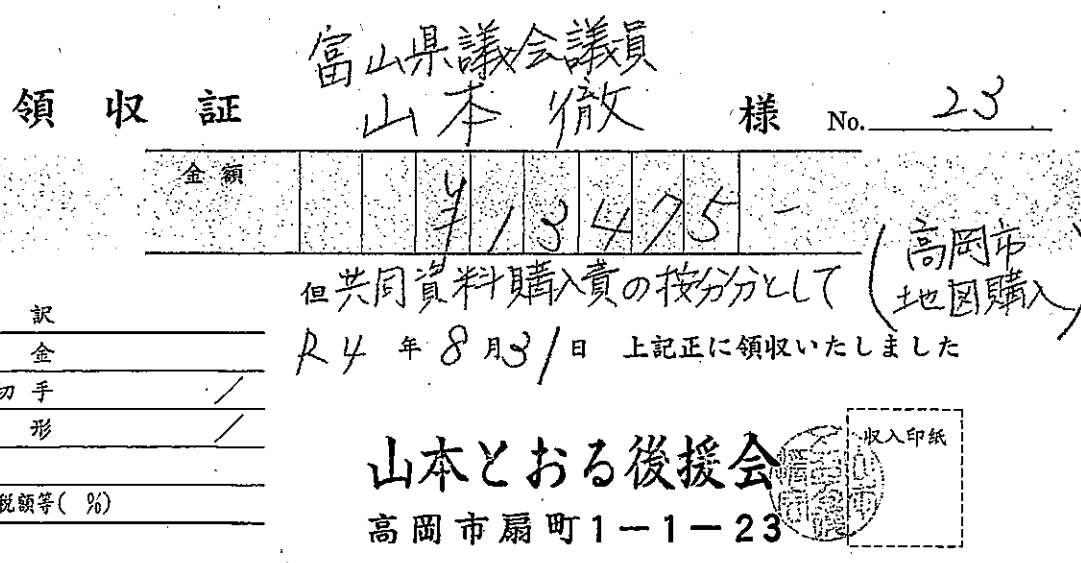 富山県議会議員
領収証 山本 徹 様 No. 23
金額 ¥13475-
但共同資料購入費の按分分として (高岡市地図購入)
R4年8月31日 上記正に領収いたしました
訳
金
切手 /
形 /
税額等( %)
山本とおる後援会
収入印紙
高岡市扇町1-1-23